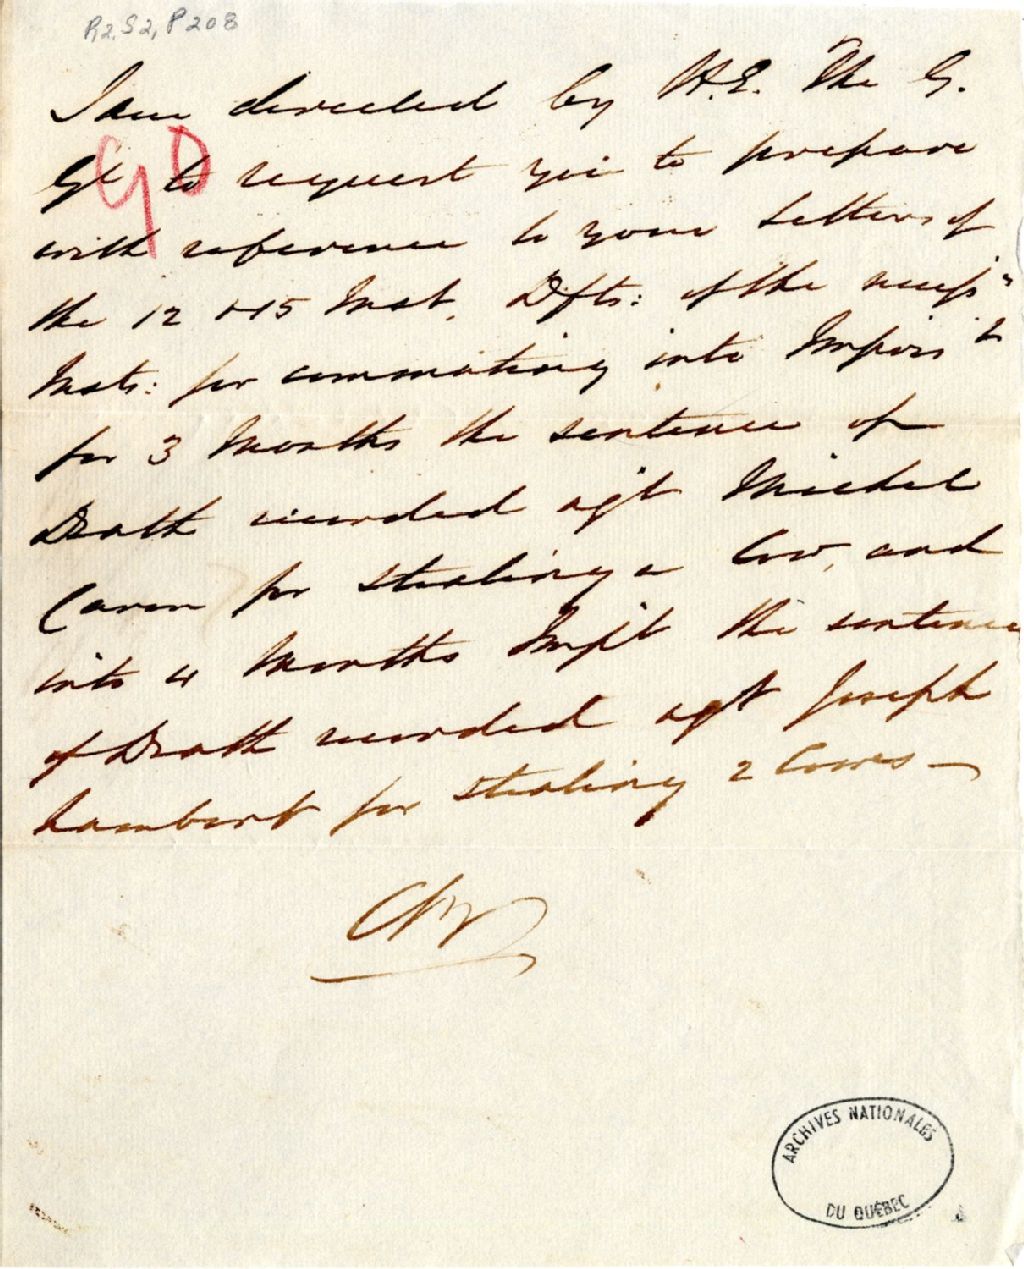 R2,S2,P208
I am directed by H.E. The G.
Gl to request you to prepare
GD
with reference to your Letters of
the 12 & 15 Inst. Dfts: of the necessy
Insts: for commuting into Imprist
for 3 Months the sentence of
Death recorded agt Michel
Caron for stealing a Cow, and
into 4 Months Impt the sentence
of Death recorded agt Joseph
Lambert for stealing 2 Cows —
ARCHIVES NATIONALES
DU QUÉBEC